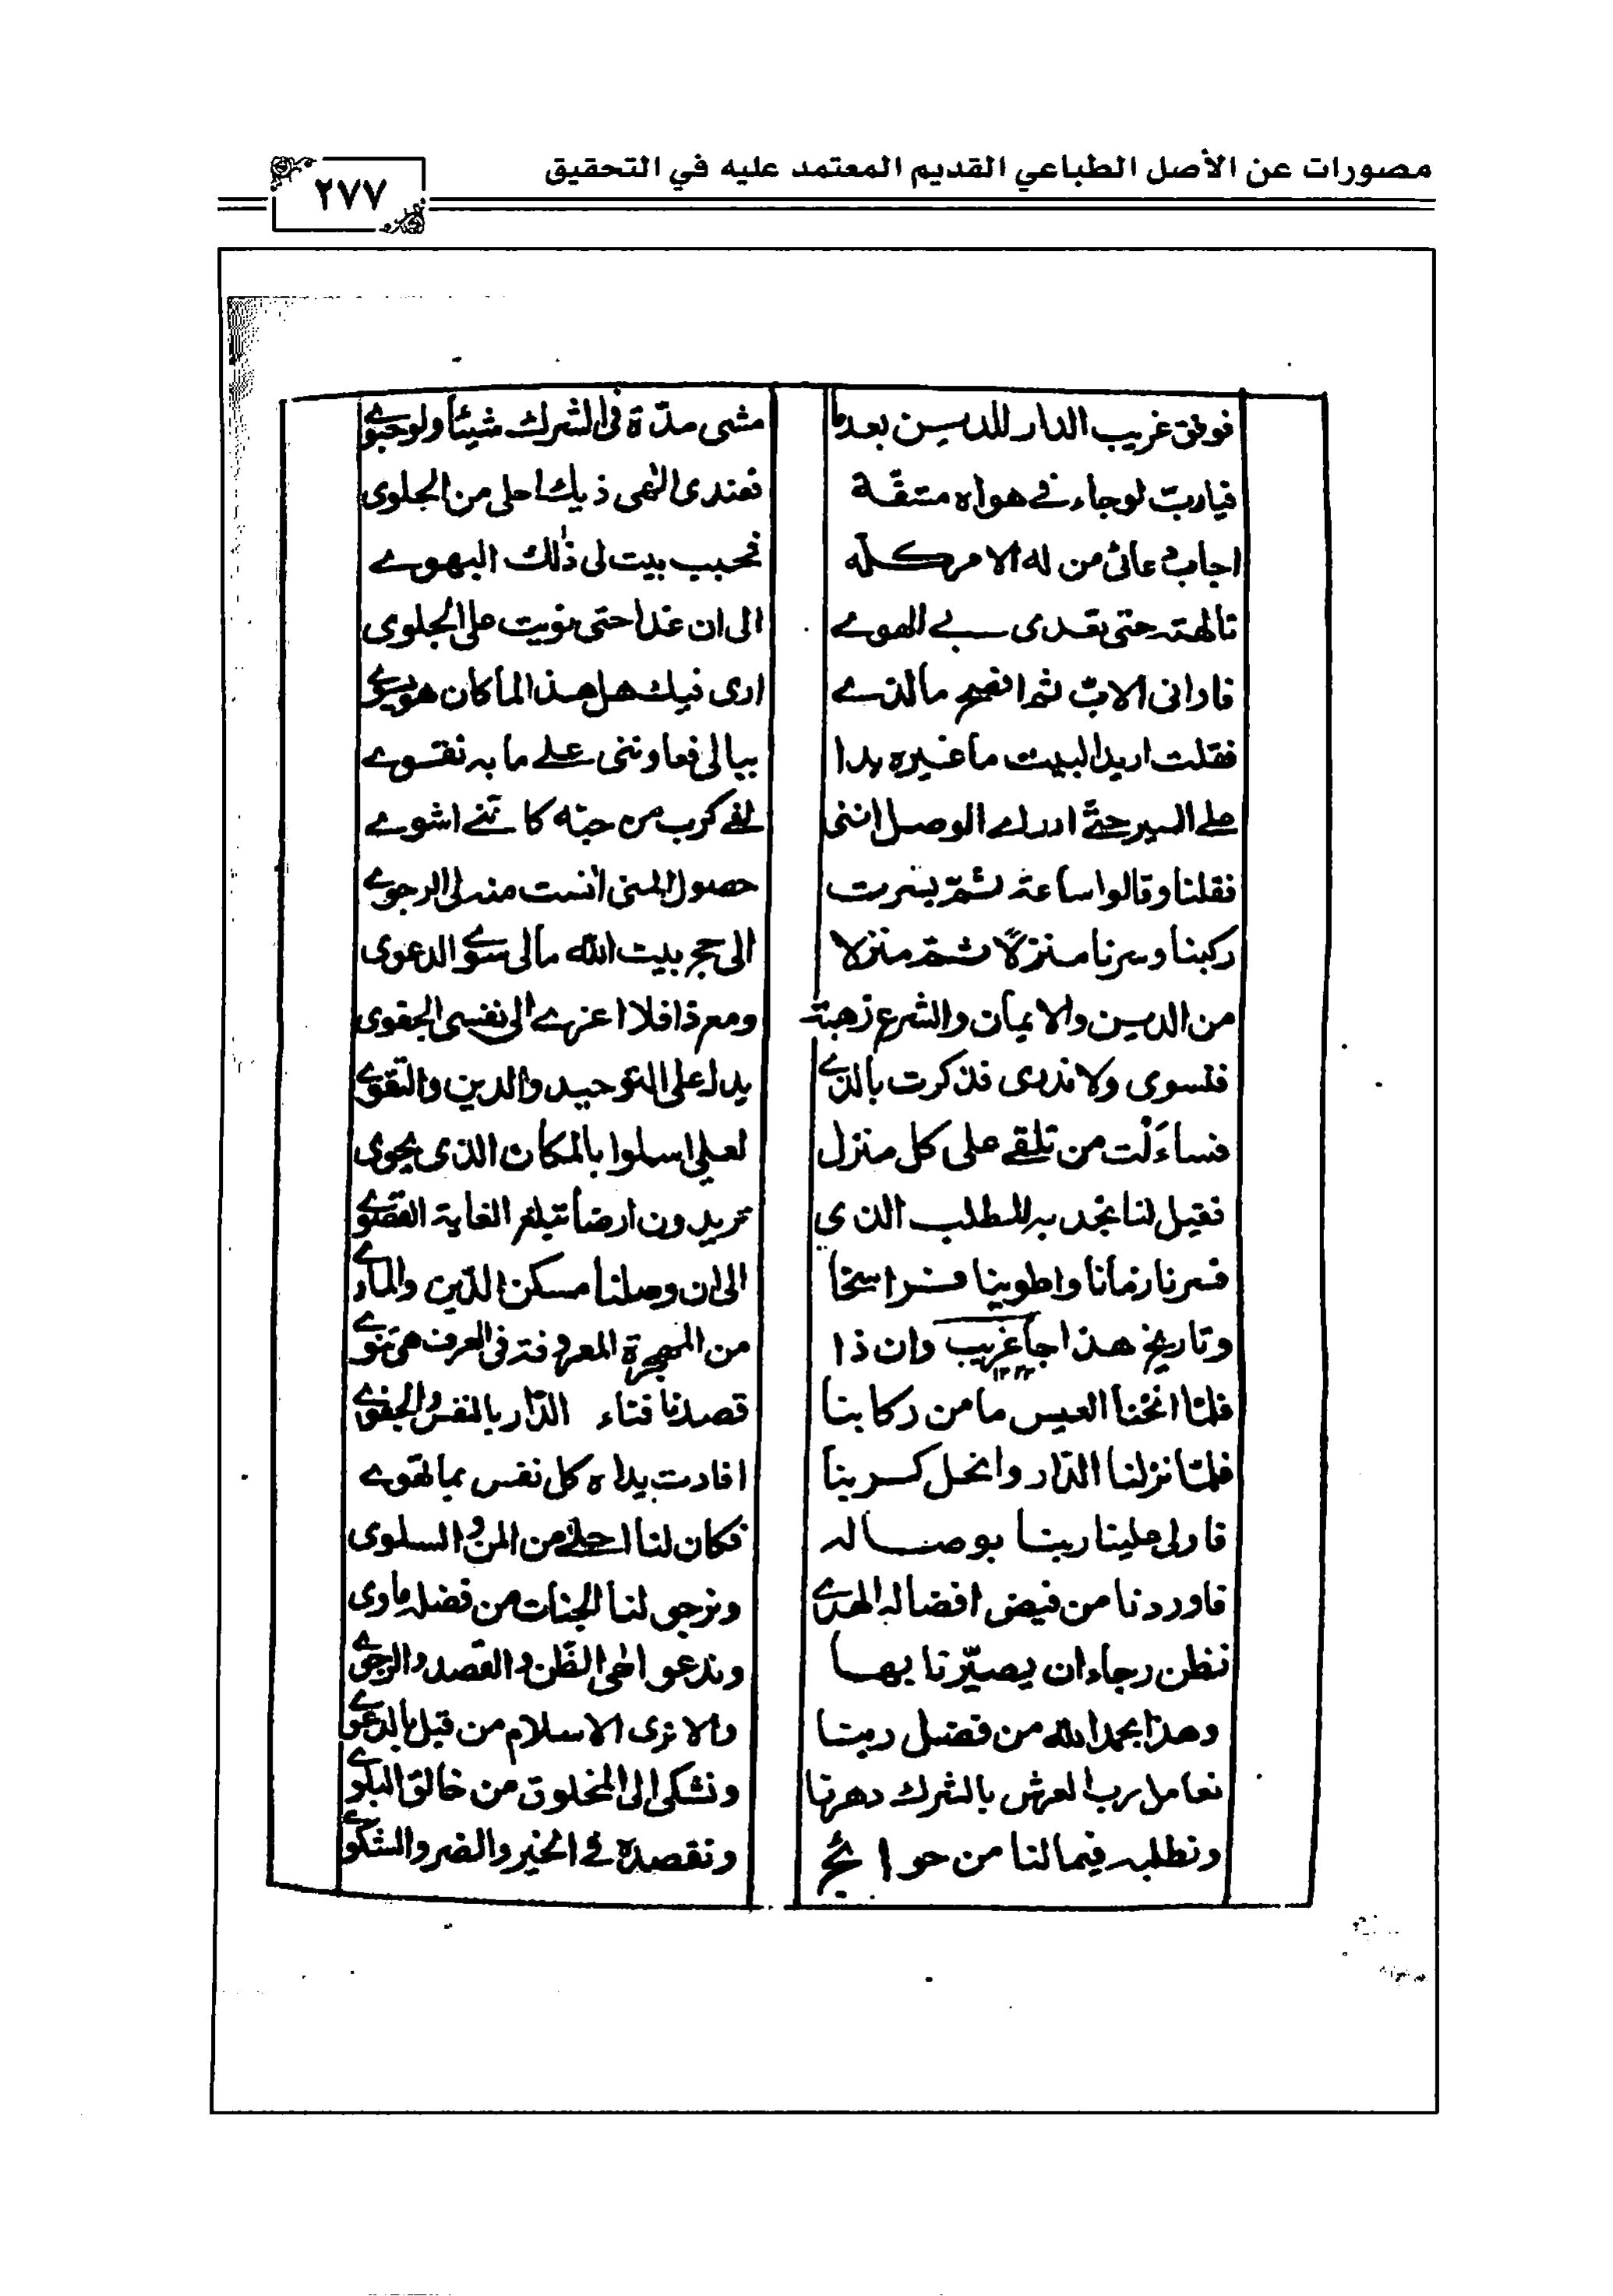 مصورات عن الأصل الطباعي القديم المعتمد عليه في التحقيق
٢٧٧
فوفق غريب الدار للدين بعدما مشى مدّة فى الشرك شيئاً ولوحبوى
فيارب لوجاء فى هواه مشقة فعندى الهى ذيك احلى من الحلوى
اجاب دعائى من له الامر كله فحبب بيت لى ذٰلك البهوى
تالهته حتى تعدى بى الهوى الى ان غذا حتى نويت على الجلوى
فادانى الاب ثم افصح مالذى ارى فيك هل هذا لما كان
فقلت اريد البيت ما غيره بدا ببالى فعاوننى على ما به نقسوى
على السير حتى ادرك الوصل اننى لفى كرب من حبّه كاننى اشوى
فقلنا وقالوا ساعة ثمّ يسرت حصول المنى انست منه لى الرجوى
ركبنا وسرنا منزلاً ثمّ منزلا الى حج بيت الله مالى سوى الدعوى
من الدين والايمان والشرع زهبة ومع ذا فلا اعزى الى نفسى الحقوى
فنسوى ولا ندرى فذكرت بالذى يدل على التوحيد والدين والتقوى
فساءَلت من تلقى على كل منزل لعلى اسلوا بالمكان الذى يحوى
فقيل لنا نجد به المطلب الذى تريدون ارضا تبلغ الغاية القصوى
فسرنا زمانا واطوينا فراسخا الى ان وصلنا مسكن الدّين والماوى
وتاريخ هذا جا غريب وان ذا من الهجرة المعروفة فى العرف هى تنوى
١٣٢٢
فلمّا انخنا العيس ما من ركابنا قصدنا فناء الدّار بالنفس والحقوى
فلمّا نزلنا الدّار وانحل كربنا افادت يداه كل نفس بما تقوى
فاولى علينا ربنا بوصاله فكان لنا احلى من المن والسلوى
فاوردنا من فيض افضاله الهدى ونرجو لنا الجنات من فضله ماوى
نظن رجاء ان يصيّرنا بها وندعو الهى الظن والقصد والرجى
وهذا بحمد الله من فضل ربنا والا نرى الاسلام من قبل بالدعوى
نعامل رب العرش بالشرك دهرنا ونشكى الى المخلوق من خالق البلوى
ونطلبه فيما لنا من حوائج ونقصده فى الخير والضر والشكوى